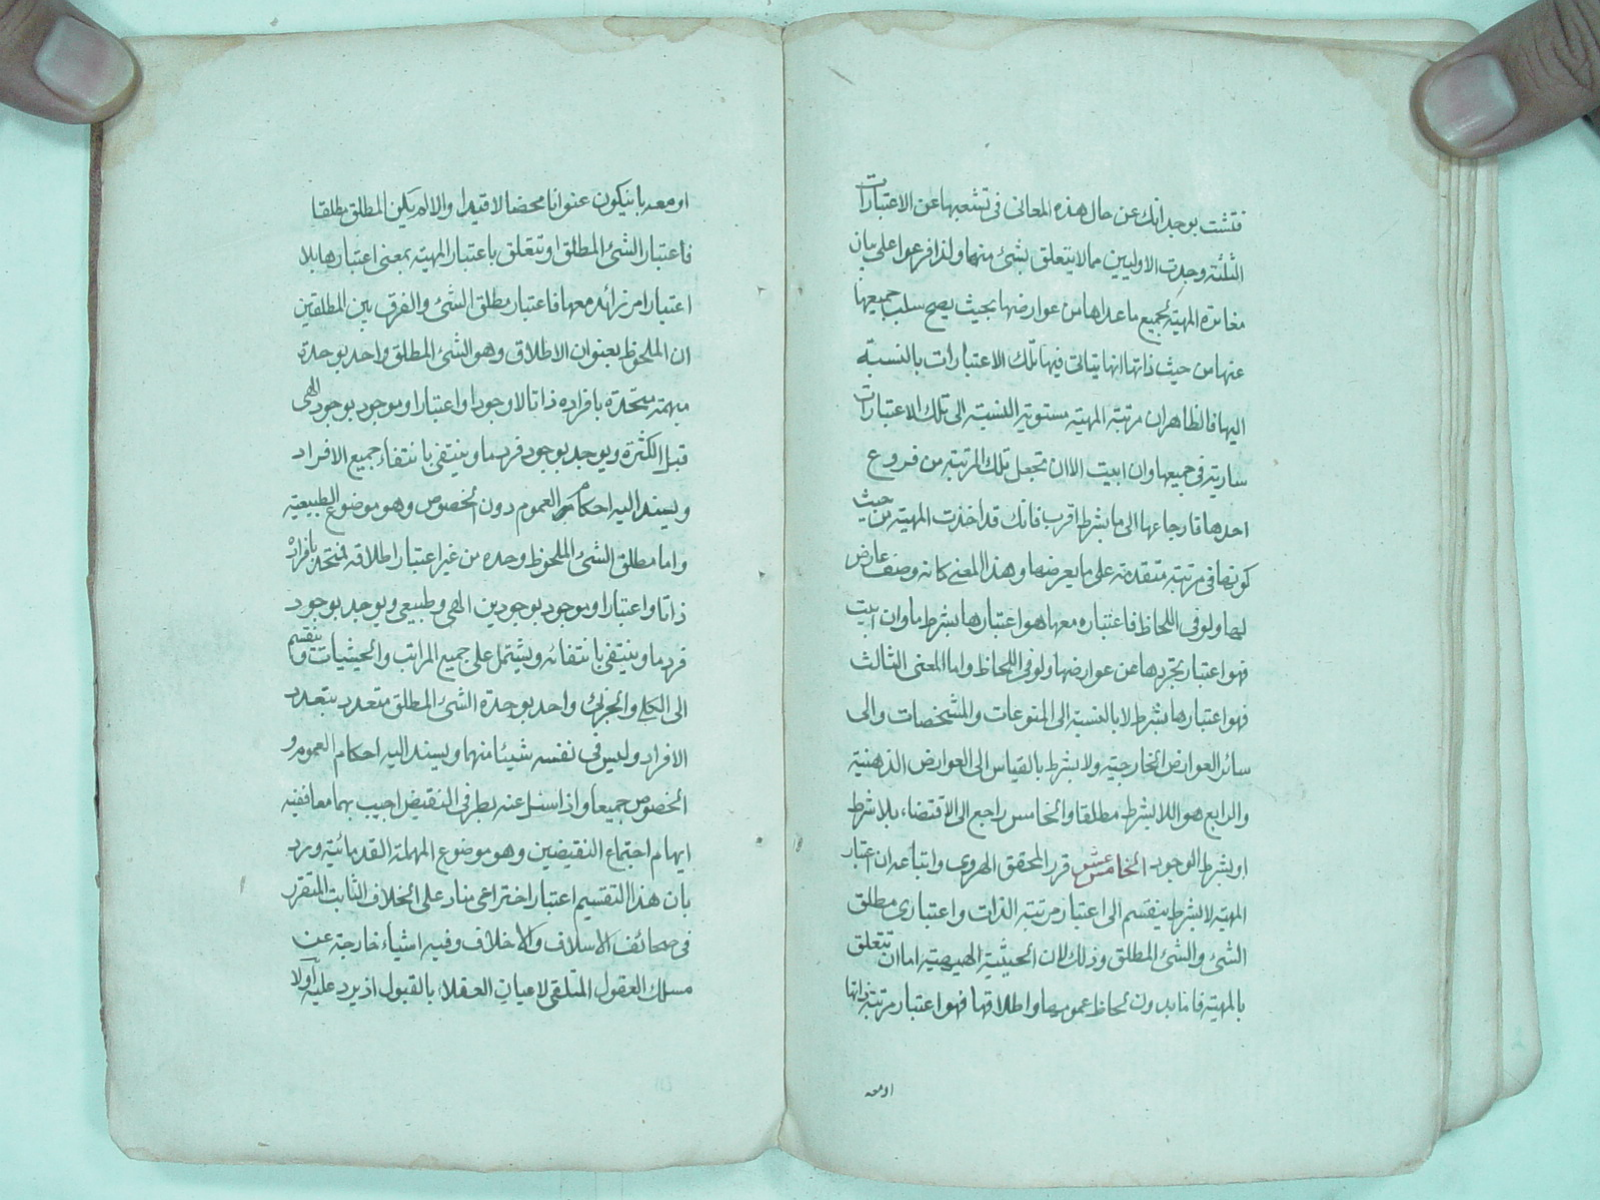 فتشت بوجدانك عن حال هذه المعانى فى تشعبها عن الاعتبارات
الثلثة وجدت الاوليين مما لا يتعلق بشئ منهما ولذا فرعوا على بيان
مغائرة المهية لجميع ما عداها من عوارضها بحيث يصح سلب جميعها
عنها من حيث ذاتها انها يتاتى فيها تلك الاعتبارات بالنسبة
اليها فالظاهر ان مرتبة المهية مستوية النسبة الى تلك الاعتبارات
سارية فى جميعها وان ابيت الا ان تجعل تلك المرتبة من فروع
احدها فارجاعها الى ما بشرط اقرب فانك قد اخذت المهية من حيث
كونها فى مرتبة متقدمة على ما يعرضها وهذا المعنى كانه وصف عارض
لها ولو فى اللحاظ فاعتباره معها هو اعتبارها بشرط ما وان ابيت
فهو اعتبار تجردها عن عوارضها ولو فى اللحاظ واما المعنى الثالث
فهو اعتبارها بشرط لا بالنسبة الى المنوعات والمشخصات والى
سائر العوارض الخارجية ولا بشرط بالقياس الى العوارض الذهنية
والرابع هو اللا بشرط مطلقا والخامس راجع الى الاقتضاء بلا شرط
او بشرط الوجود الخامس عشر قرر المحقق الهروى واتباعه ان اعتبار
المهية لا بشرط ينقسم الى اعتبار مرتبة الذات واعتبارى مطلق
الشئ والشئ المطلق وذلك لان الحيثية اما ان تتعلق
بالمهية فاما بدون لحاظ عمومها واطلاقها فهو اعتبار مرتبة ذاتها
او معه
او معه بان يكون عنوانا محضا لا قيدا والا لم يكن المطلق مطلقا
فاعتبار الشئ المطلق او تتعلق باعتبار المهية بمعنى اعتبارها بلا
اعتبار امر زائد معها فاعتبار مطلق الشئ والفرق بين المطلقين
ان الملحوظ بعنوان الاطلاق وهو الشئ المطلق واحد بوحدة
مبهمة متحدة بافراده ذاتا لا وجودا واعتبارا وموجود بوجود الهى
قبل الكثرة ويوجد بوجود فرد ما وينتفى بانتفاء جميع الافراد
ويسند اليه احكام العموم دون الخصوص وهو موضوع الطبيعية
واما مطلق الشئ الملحوظ وحده من غير اعتبار اطلاقه فمتحد بافراده
ذاتا واعتبارا وموجود بوجودين الهى وطبيعى ويوجد بوجود
فرد ما وينتفى بانتفائه ويشتمل على جميع المراتب والحيثيات وينقسم
الى الكلى والجزئى واحد بوحدة الشئ المطلق متعدد بتعدد
الافراد وليس فى نفسه شيئا منهما ويسند اليه احكام العموم و
الخصوص جميعا واذا سئل عنه بطرفى النقيض اجيب بهما معا ففيه
ايهام اجتماع النقيضين وهو موضوع المهملة القدمائية ويرد
بان هذا التقسيم اعتبار اختراعى مناد على الخلاف الثابت المتقرر
فى صحائف الاسلاف والاخلاف وفيه اشياء خارجة عن
مسلك العقول المتلقى لاعيان العقلاء بالقبول اذ يرد عليه اولا